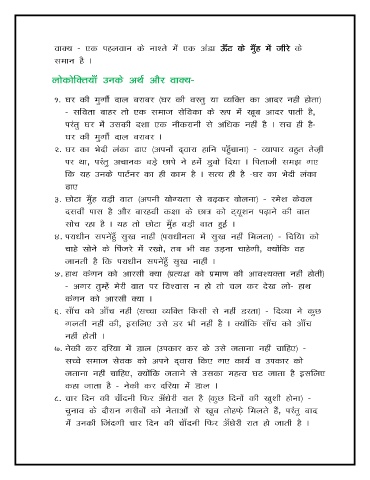 वाक्य - एक पहलवान के नाश्ते में एक अंडा ऊँट के मुँह में जीरे के
समान है ।
लोकोक्तियाँ उनके अर्थ और वाक्य-
१. घर की मुर्गी दाल बराबर (घर की वस्तु या व्यक्ति का आदर नहीं होता)
- सविता बाहर तो एक समाज सेविका के रूप में खूब आदर पाती है,
परंतु घर में उसकी दशा एक नौकरानी से अधिक नहीं है । सच ही है-
घर की मुर्गी दाल बराबर ।
२. घर का भेदी लंका ढाए (अपनों द्वारा हानि पहुँचाना) - व्यापार बहुत तेज़ी
पर था, परंतु अचानक बड़े छापे ने हमें डुबो दिया । पिताजी समझ गए
कि यह उनके पार्टनर का ही काम है । सत्य ही है -घर का भेदी लंका
ढाए
३. छोटा मुँह बड़ी बात (अपनी योग्यता से बढ़कर बोलना) - रमेश केवल
दसवीं पास है और बारहवीं कक्षा के छात्र को ट्यूशन पढ़ाने की बात
सोच रहा है । यह तो छोटा मुँह बड़ी बात हुई ।
४. पराधीन सपनेहूँ सुख नाहीं (पराधीनता में सुख नहीं मिलता) - चिड़िया को
चाहे सोने के पिंजरे में रखो, तब भी वह उड़ना चाहेगी, क्योंकि वह
जानती है कि पराधीन सपनेहूँ सुख नाहीं ।
५. हाथ कंगन को आरसी क्या (प्रत्यक्ष को प्रमाण की आवश्यक्ता नहीं होती)
- अगर तुम्हें मेरी बात पर विश्वास न हो तो चल कर देख लो- हाथ
कंगन को आरसी क्या ।
६. साँच को आँच नहीं (सच्चा व्यक्ति किसी से नहीं डरता) - दिव्या ने कुछ
गलती नहीं की, इसलिए उसे डर भी नहीं है । क्योंकि साँच को आँच
नहीं होती ।
७. नेकी कर दरिया में डाल (उपकार कर के उसे जताना नहीं चाहिए) -
सच्चे समाज सेवक को अपने द्वारा किए गए कार्य व उपकार को
जताना नहीं चाहिए, क्योंकि जताने से उसका महत्व घट जाता है इसलिए
कहा जाता है - नेकी कर दरिया में डाल ।
८. चार दिन की चाँदनी फिर अँधेरी रात है (कुछ दिनों की खुशी होना) -
चुनाव के दौरान गरीबों को नेताओं से खूब तोहफ़े मिलते हैं, परंतु बाद
में उनकी जिंदगी चार दिन की चाँदनी फिर अँधेरी रात हो जाती है ।